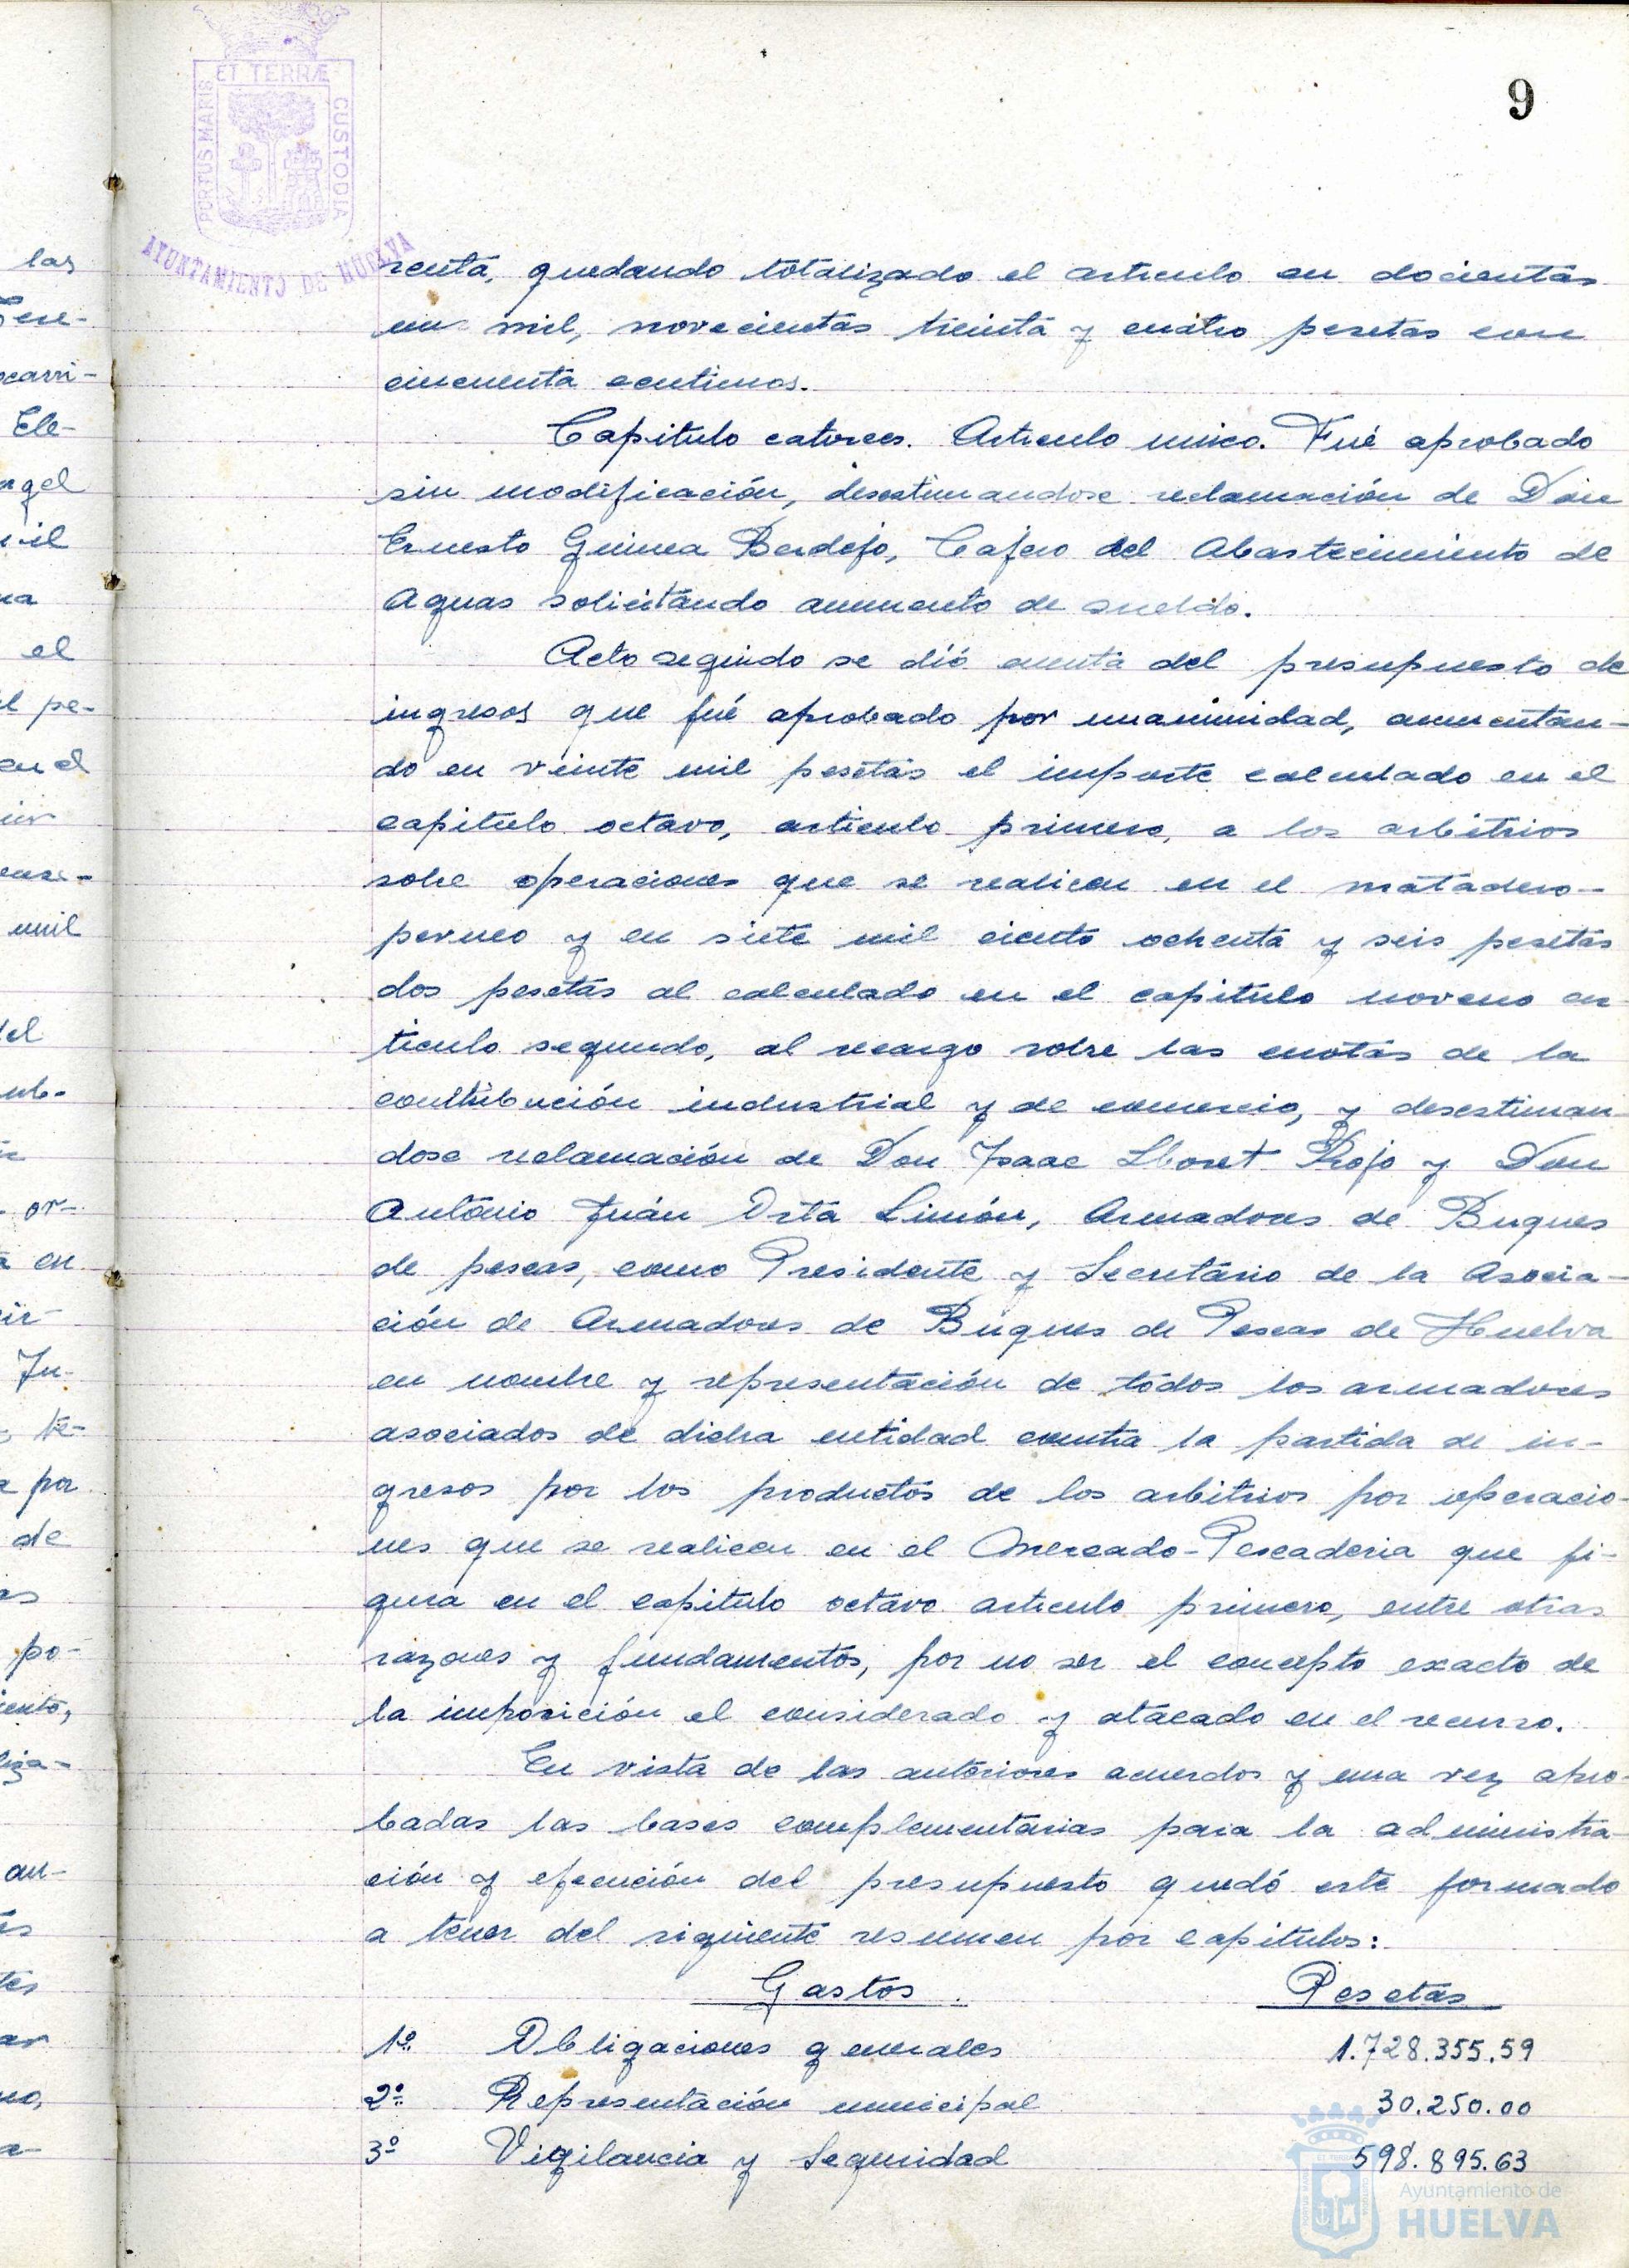 9
ET TERRÆ
PORTUS MARIS
CUSTODIA
AYUNTAMIENTO DE HUELVA
renta, quedando totalizado el articulo en docientas
un mil, novecientas treinta y cuatro pesetas con
cincuenta centimos.
Capitulo catorces. Articulo unico. Fué aprobado
sin modificación, desestimandose reclamación de Don
Ernesto Guinea Berdejo, Cajero del Abastecimiento de
Aguas solicitando aumento de sueldo.
Acto seguido se dió cuenta del presupuesto de
ingresos que fué aprobado por unanimidad, aumentan-
do en veinte mil pesetas el importe calculado en el
capitulo octavo, articulo primero, a los arbitrios
sobre operaciones que se realicen en el matadero-
perneo y en siete mil ciento ochenta y seis pesetas
dos pesetas al calculado en el capitulo noveno ar-
ticulo segundo, al recargo sobre las cuotas de la
contribución industrial y de comercio, y desestiman
dose reclamación de Don Isaac Lloret Rojo y Don
Antonio Juán Orta Limón, Armadores de Buques
de pescas, como Presidente y Secretario de la Asocia-
ción de Armadores de Buques de Pescas de Huelva
en nombre y representación de todos los armadores
asociados de dicha entidad contra la partida de in-
gresos por los productos de los arbitrios por operacio-
nes que se realicen en el Mercado-Pescaderia que fi-
gura en el capitulo octavo articulo primero, entre otras
razones y fundamentos, por no ser el concepto exacto de
la imposición el considerado y atacado en el recurso.
En vista de las anteriores acuerdos y una vez apro-
badas las bases complementarias para la administra-
ción y ejecución del presupuesto quedó este formado
a tenor del siguiente resumen por capitulos:
Gastos. Pesetas
1º Obligaciones generales 1.728.355.59
2º Representación municipal 30.250.00
3º Vigilancia y Seguridad 598.895.63
Ayuntamiento de
HUELVA
las
carri-
Ele-
el
pe-
en el
mil
or-
en
por
de
po-